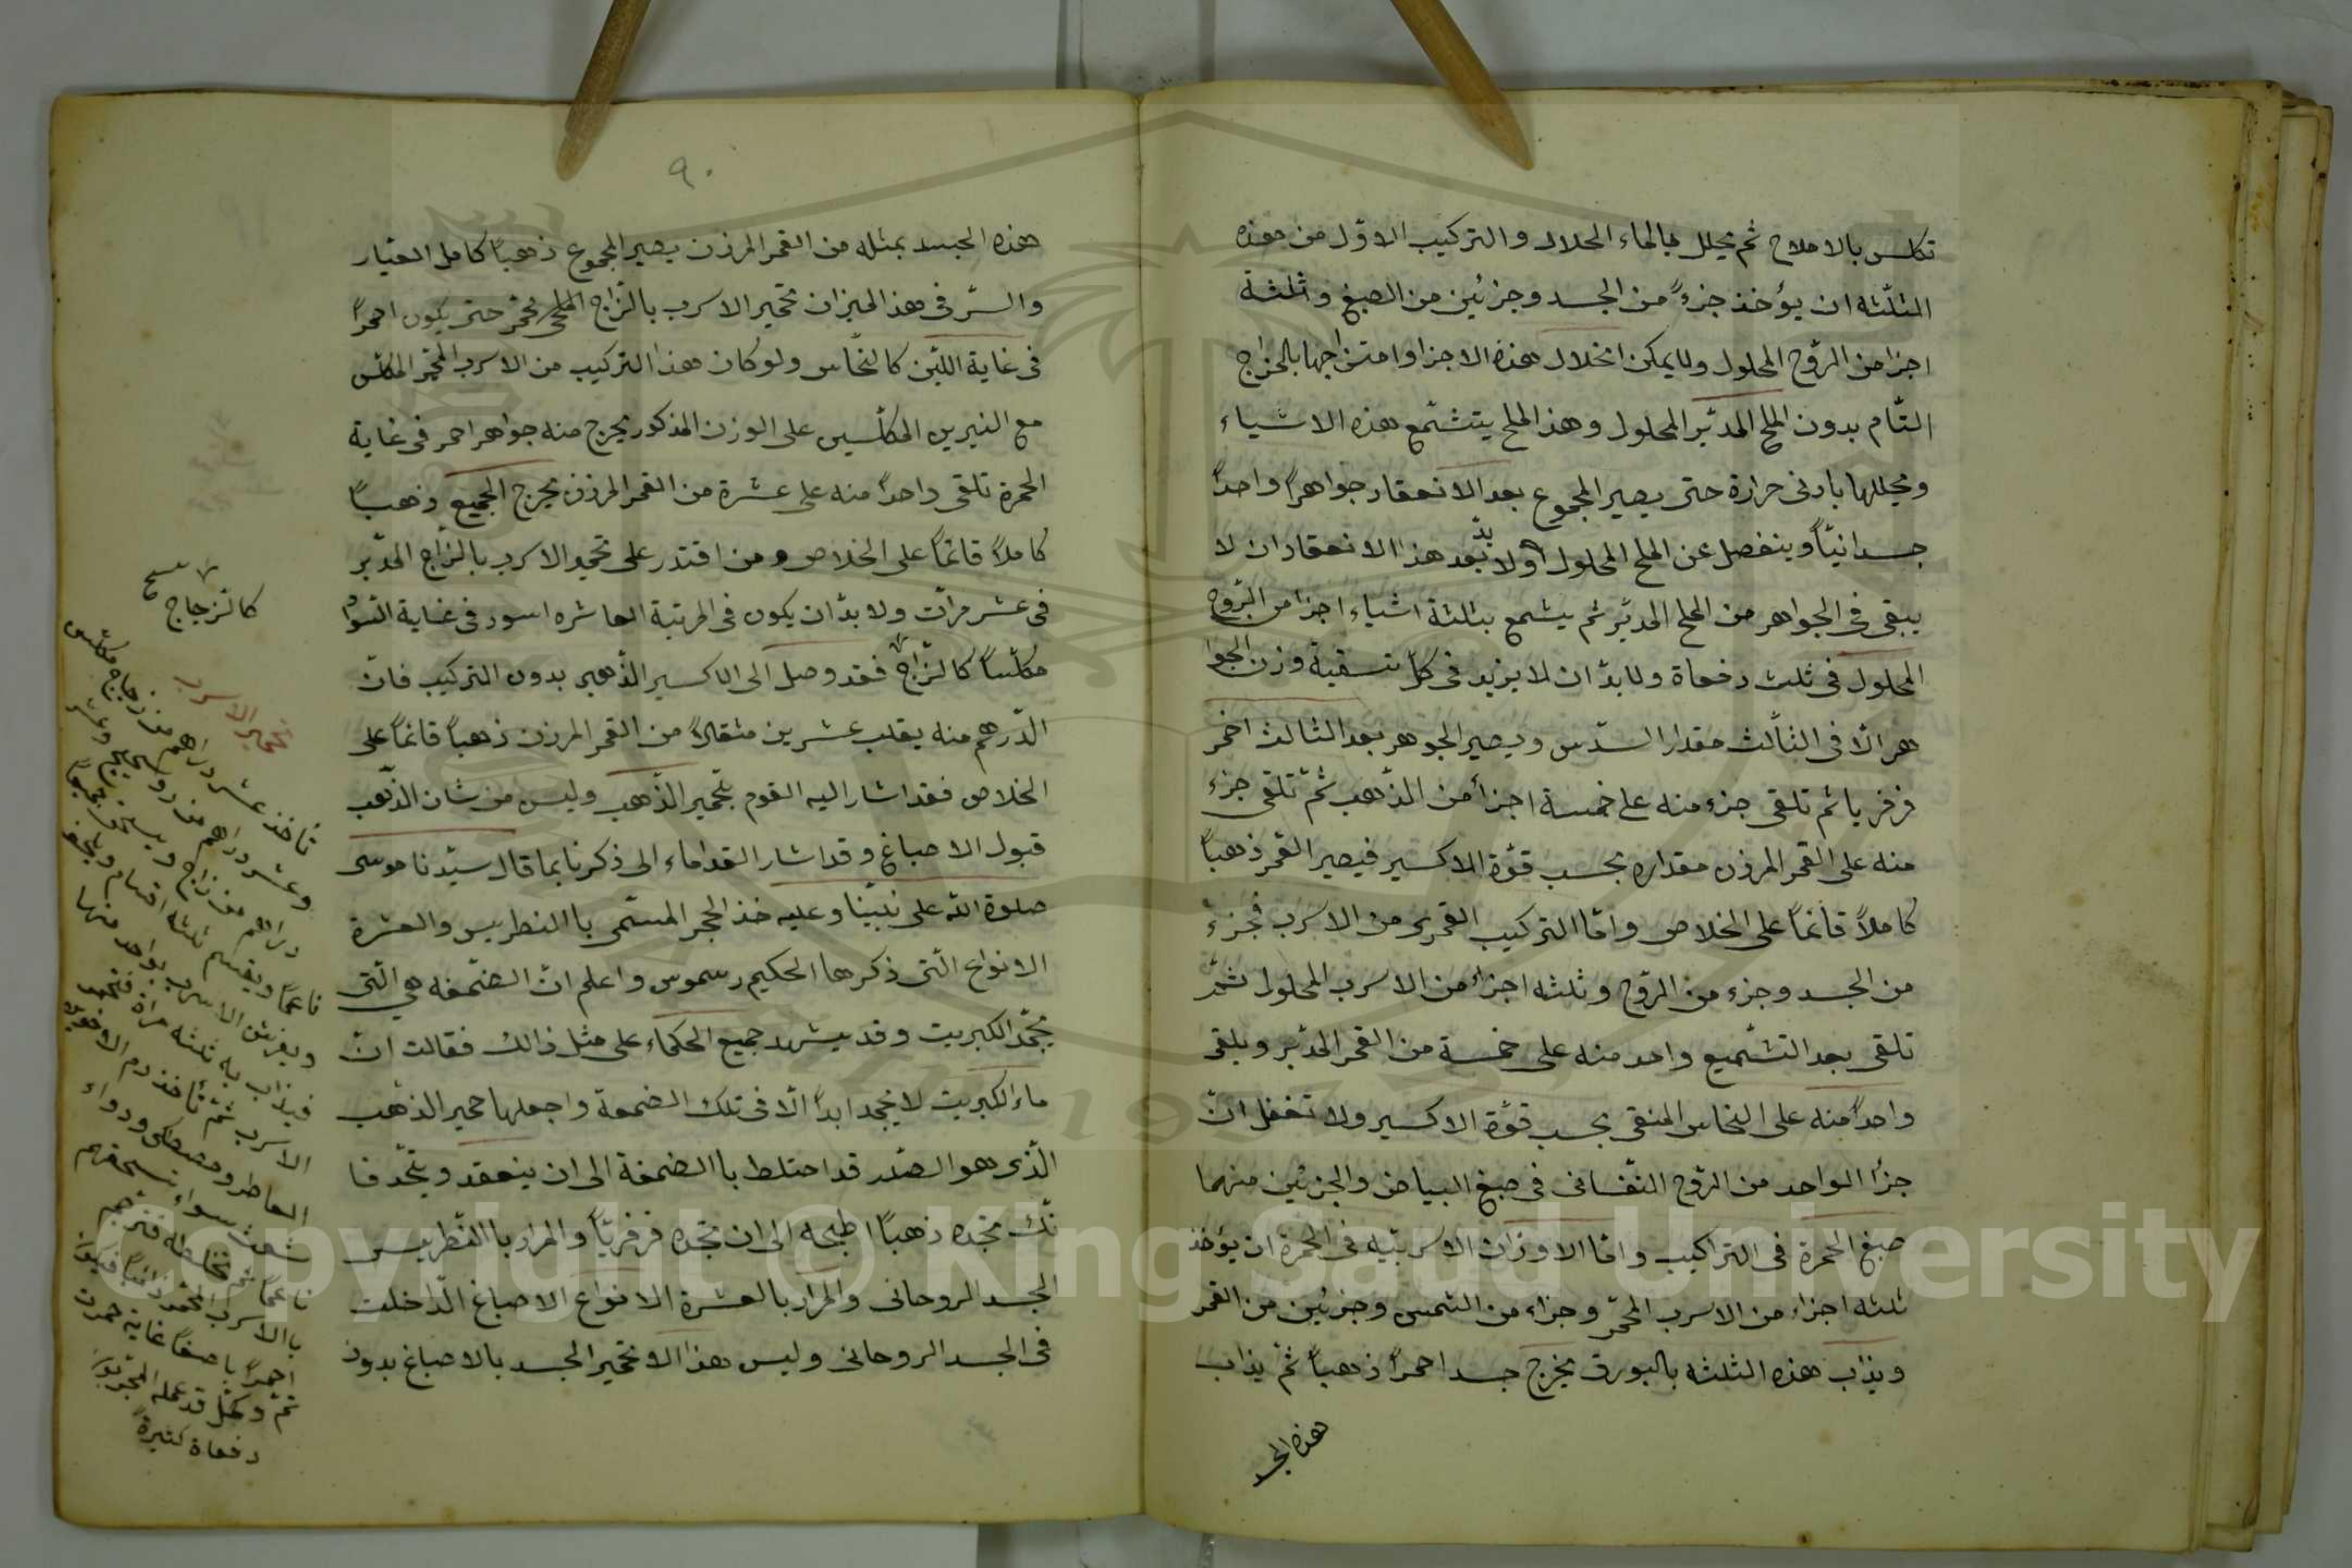 تكلس بالاملاح ثم يحلل بالماء الحلال والتركيب الاوّل من هذه
الثلثه ان يؤخذ جزءً من الجسد وجزئين من الصبغ وثلثة
اجزا من الرّوح المحلول ولا يمكن انحلال هذه الاجزا وامتزاجها بالمزاج
التّام بدون الملح المدبّر المحلول وهذا الملح يتشمّع هذه الاشياء
ويحللها بادنى حرارة حتى يصير المجموع بعد الانعقاد جواهراً واحداً
جسدانيّاً وينفصل عن الملح المحلول اولا بدّ بعد هذا الانعقاد ان لا
يبقى فى الجواهر من الملح المدبّر ثم يشمع بثلثة اشياء اجزا من الرّوح
المحلول فى ثلث دفعاة ولا بدّ ان لا يزيد فى كلّ تسقية وزن الجوا
هر الّا فى الثّالث مقدار السّدس ويصير الجوهر بعد الثالث احمر
فرفريا ثم تلقى جزء منه على خمسة اجزأ من الذّهب ثمّ تلقى جزء
منه على القمر المرزن مقداره بحسب قوّة الاكسير فيصير القمر ذهباً
كاملاً قائماً على الخلاص وامّا التركيب القمرى من الاسرب فجزءً
من الجسد وجزء من الرّوح وثلثه اجزأ من الاسرب المحلول ثمّ
تلقى بعد التشّميع واحد منه على خمسة من القمر المدّبر ويلقى
واحداً منه على النحاس المنقى بحسب قوّة الاكسير ولا تغفل انّ
جزأ الواحد من الرّوح النّفسانى فى صبغ البياض والجزئين منهما
صبغ الحمرة فى التراكيب وامّا الاوزان الاسربيّه فى الحمرة ان يؤخذ
ثلثه اجزاء من الاسرب المحمّر وجزاء من الشمس وجزئين من القمر
ويذاب هذه الثلثه بالبورق يخرج جسدا احمراً ذهباً ثمّ يذاب
هذه الجسد
٩٠
هذه الجسد بمثله من القمر المرزن يصير المجموع ذهباً كامل العيار
والسّر فى هذا الميزان تحمير الاسرب بالزّاج الملحى يحمّر حتى يكون احمراً
فى غاية اللّين كالنحّاس ولو كان هذا التركيب من الاسرب المحمّر المكلس
مع النيرين المكلّسين على الوزن المذكور يخرج منه جواهر احمر فى غاية
الحمرة تلقى واحداً منه على عشرة من القمر المرزن يخرج الجميع ذهباً
كاملاً قائماً على الخلاص ومن اقتدر على تحمير الاسرب بالزّاج المدّبر
فى عشر مرّات ولا بدّ ان يكون فى المرتبة العاشره اسود فى غاية السّواد
مكلّساً كالزّاج فقد وصل الى الاكسير الذّهبى بدون التركيب فانّ
الدّرهم منه يقلب عشرين مثقالاً من القمر المرزن ذهباً قائماً على
الخلاص فقد اشار اليه القوم بتحمير الذّهب وليس من شان الذّهب
قبول الاصباغ وقد اشار القدماء الى ذكرنا بما قال سيّدنا موسى
صلوة الله على نبيّنا وعليه خذ الحجر المسمّى باالنطريس والعشرة
الانواع الّتى ذكرها الحكيم رسموس واعلم انّ الصّمغه هى الّتى
يجمّد الكبريت وقد يشهد جميع الحكماء على مثل ذالك فقالت انّ
ماء الكبريت لا يجمد ابداً الّا فى تلك الصمغة واجعلها خمير الذهب
الّذى هو الصّدر قد اختلط باالصّمغة الى ان ينعقد ويتجمّد فا
نّك تجده ذهباً اطبخه الى ان تجده فرفريّاً والمراد باالنّطريس
الجسد الروحانى والمراد بالعشرة الانواع الاصباغ الّداخلت
فى الجسد الروحانى وليس هذا الا تخمير الجسد بالاصباغ بدون
كالزجاج صح
تحمير الاسرب
تأخذ عشر دراهم من زجاج مكلس
وعشر دراهم من
دراهم من زاج ويسحق جميعاً
ناعماً ويقسم ثلثه اقسام
ويفرش الاسرب بواحد منها
فيذاب به ثلثه مراة
الاسرب ثمّ تأخذ دم الاخوين
العاطر ومصطكى ودواء
سواء تسحقهم
ناعماً ثم تخلطه
باالاسرب المحمّر ذائباً فيكون
احمراً باصفاً غاية حمرت
ثمّ وكمّل قد عمله المجربون
دفعاة كثيرةً